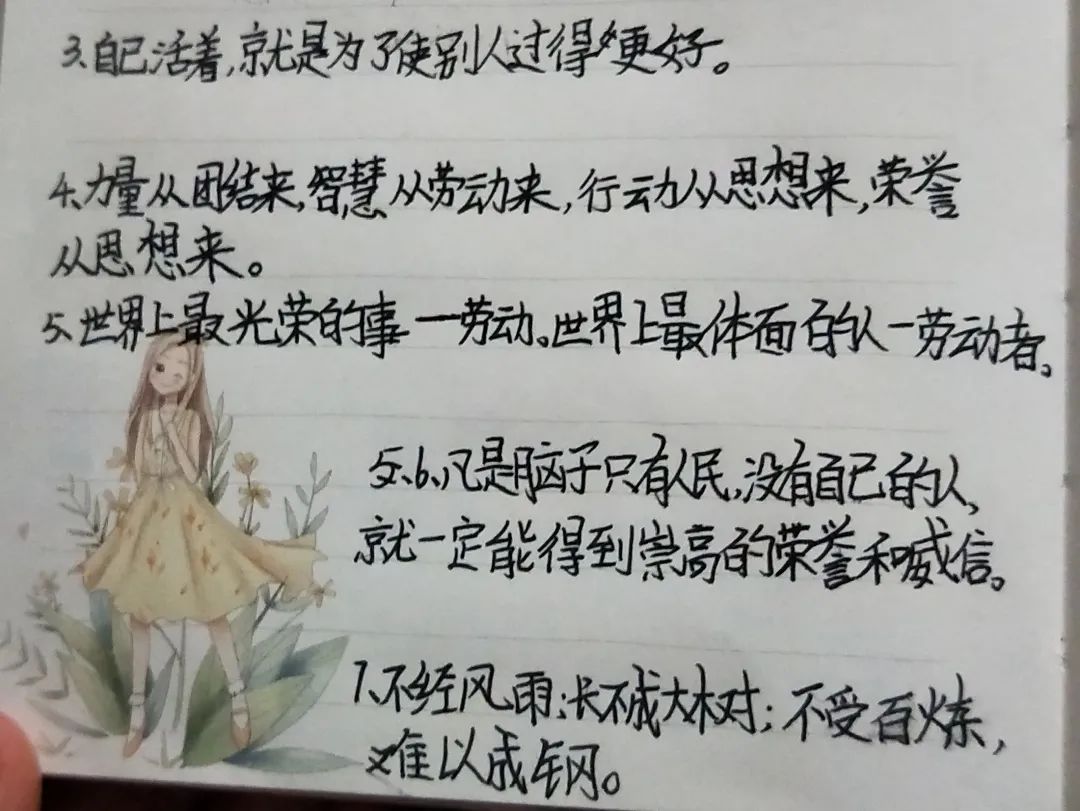 3、自己活着,就是为了使别人过得更好。
4、力量从团结来,智慧从劳动来,行动从思想来,荣誉
从思想来。
5、世界上最光荣的事一劳动。世界上最体面的人一劳动者。
5、6、凡是脑子只有人民,没有自己的人,
就一定能得到崇高的荣誉和威信。
7、不经风雨;长不成大树;不受百炼,
难以成钢。